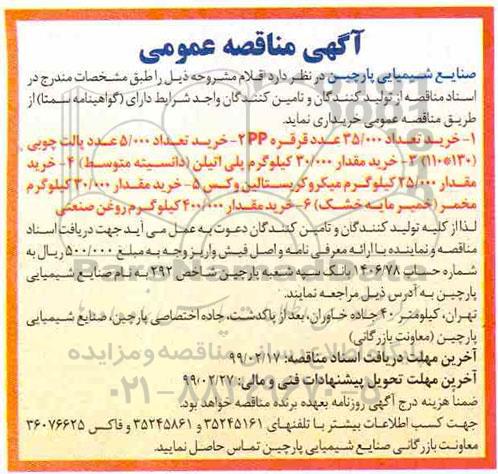 آگهی مناقصه عمومی
صنایع شیمیایی پارچین در نظر دارد اقلام مشروحه ذیل را طبق مشخصات مندرج در
اسناد مناقصه از تولید کنندگان و تامین کنندگان واجد شرایط دارای (گواهینامه سمتا) از
طریق مناقصه عمومی خریداری نماید.
۱- خرید تعداد ۳۵/۰۰۰ عدد قرقره PP ۲- خرید تعداد ۵/۰۰۰ عدد پالت چوبی
(۱۳۰*۱۱۰) ۳- خرید مقدار ۳۰/۰۰۰ کیلوگرم پلی اتیلن (دانسیته متوسط) ۴- خرید
مقدار ۲۵/۰۰۰ کیلوگرم میکروکریستالین وکس ۵- خرید مقدار ۳۰/۰۰۰ کیلوگرم
مخمر (خمیر مایه خشک) ۶- خرید مقدار ۴۰۰/۰۰۰ کیلوگرم روغن صنعتی
لذا از کلیه تولید کنندگان و تامین کنندگان دعوت به عمل می آید جهت دریافت اسناد
مناقصه و نماینده با ارائه معرفی نامه و اصل فیش واریز وجه به مبلغ ۵۰۰/۰۰۰ ریال به
شماره حساب ۱۴۰۶/۷۸ بانک سپه شعبه پارچین شاخص ۲۹۲ به نام صنایع شیمیایی
پارچین به آدرس ذیل مراجعه نمایند.
تهران، کیلومتر ۴۰ جاده خاوران، بعد از پاکدشت، جاده اختصاصی پارچین، صنایع شیمیایی
پارچین (معاونت بازرگانی)
آخرین مهلت دریافت اسناد مناقصه: ۹۹/۰۲/۱۷
آخرین مهلت تحویل پیشنهادات فنی و مالی: ۹۹/۰۲/۲۷
ضمنا هزینه درج آگهی روزنامه بعهده برنده مناقصه خواهد بود.
جهت کسب اطلاعات بیشتر با تلفنهای ۳۵۲۴۵۱۶۱ و ۳۵۲۴۵۸۶۱ و فاکس ۳۶۰۷۶۶۲۵
معاونت بازرگانی صنایع شیمیایی پارچین تماس حاصل نمایید.